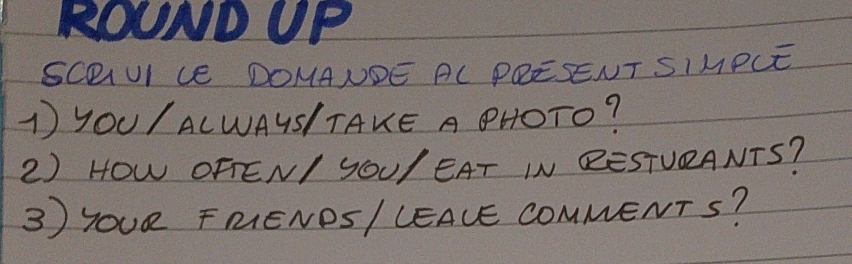 ROUND UP
SCRIVI LE DOMANDE AL PRESENT SIMPLE
1) YOU/ALWAYS/TAKE A PHOTO?
2) HOW OFTEN/ YOU/ EAT IN RESTURANTS?
3) YOUR FRIENDS/ LEAVE COMMENTS?